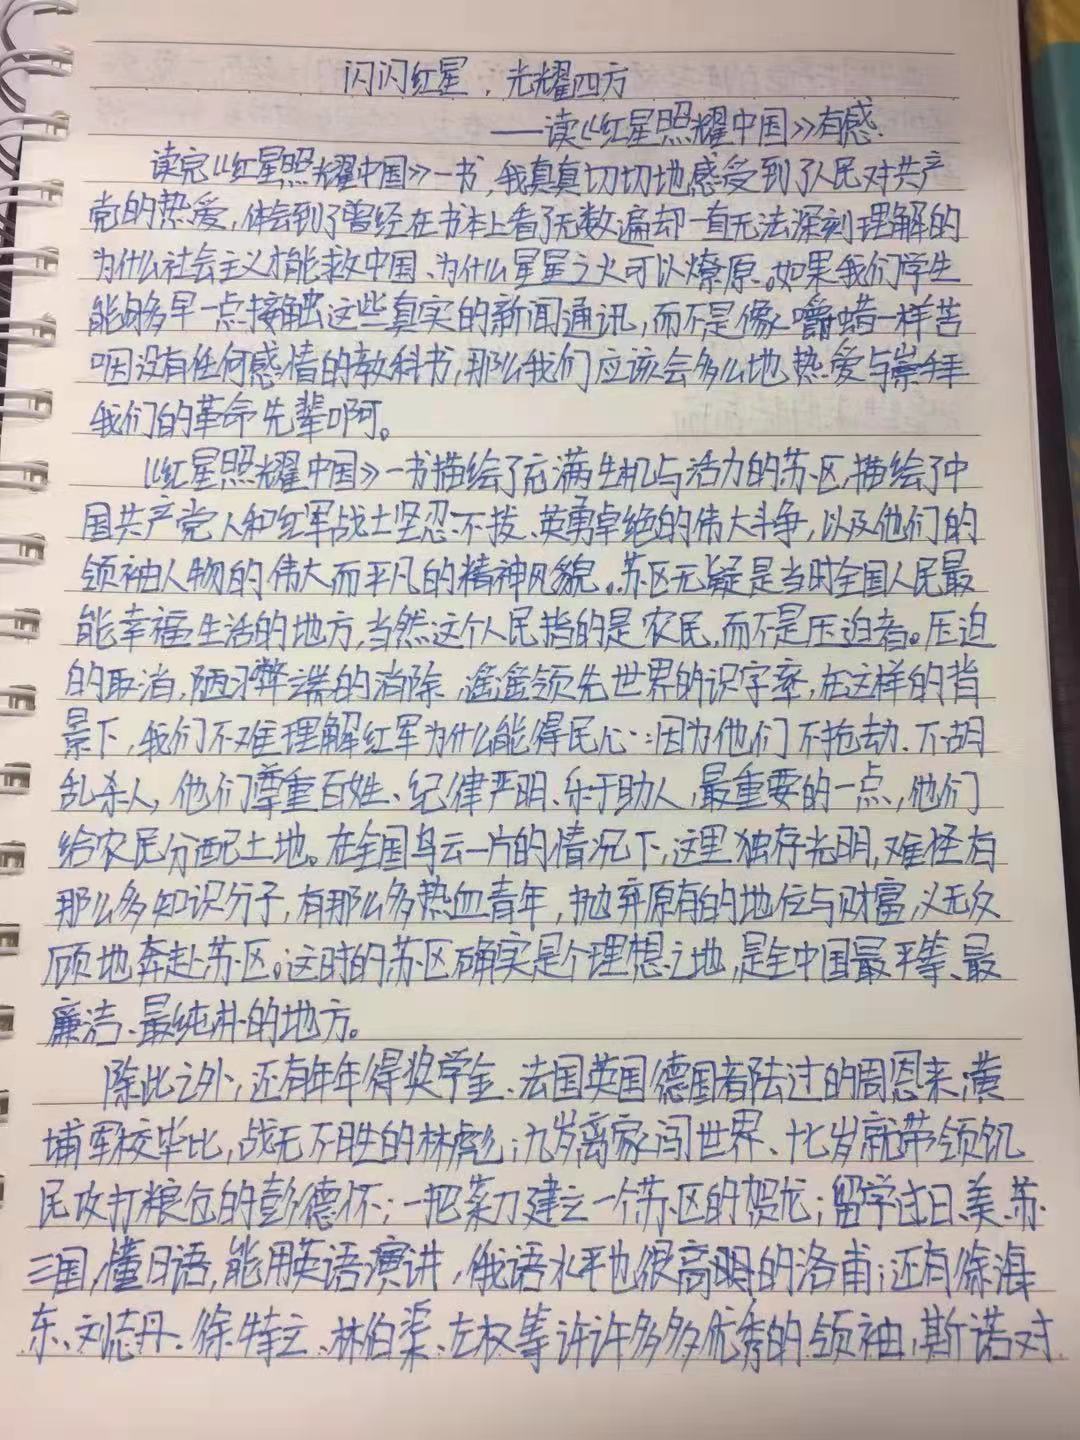 闪闪红星，光耀四方
——读《红星照耀中国》有感
读完《红星照耀中国》一书，我真真切切地感受到了人民对共产
党的热爱，体会到了曾经在书本上看了无数遍却一直无法深刻理解的
为什么社会主义才能救中国、为什么星星之火可以燎原。如果我们学生
能够多早一点接触这些真实的新闻通讯，而不是像嚼蜡一样苦
咽没有任何感情的教科书，那么我们应该会多么地热爱与崇拜
我们的革命先辈啊。
《红星照耀中国》一书描绘了充满生机与活力的苏区，描绘了中
国共产党人和红军战士坚忍不拨、英勇卓绝的伟大斗争，以及他们的
领袖人物的伟大而平凡的精神风貌。苏区无疑是当时全国人民最
能幸福生活的地方，当然这个人民指的是农民，而不是压迫者。压迫
的取消，陋习弊端的消除，遥遥领先世界的识字率，在这样的背
景下，我们不难理解红军为什么能得民心：因为他们不抢劫、不胡
乱杀人，他们尊重百姓、纪律严明、乐于助人，最重要的一点，他们
给农民分配土地。在全国乌云一片的情况下，这里独存光明，难怪有
那么多知识分子，有那么多热血青年，抛弃原有的地位与财富，义无反
顾地奔赴苏区。这时的苏区确实是个理想之地，是全中国最平等、最
廉洁、最纯朴的地方。
除此之外，还有年年得奖学金、法国英国德国者陆过的周恩来；黄
埔军校毕业，战无不胜的林彪；九岁离家闯世界、十七岁就带领饥
民攻打粮仓的彭德怀；一把菜刀建立一个苏区的贺龙；留学过日、美、苏
三国，懂日语，能用英语演讲，俄语水平也很高明的洛甫；还有徐海
东、刘志丹、徐特立、林伯渠、左权等许许多多优秀的领袖，斯诺对